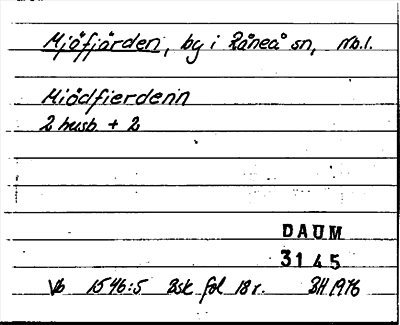 Mjöfjärden, by i Råneå sn, Nb.l.
Miödfierdenn
2 husb. + 2
DAUM
3145
Vb 1546:5 Bsk fol 18 r. BH 1976